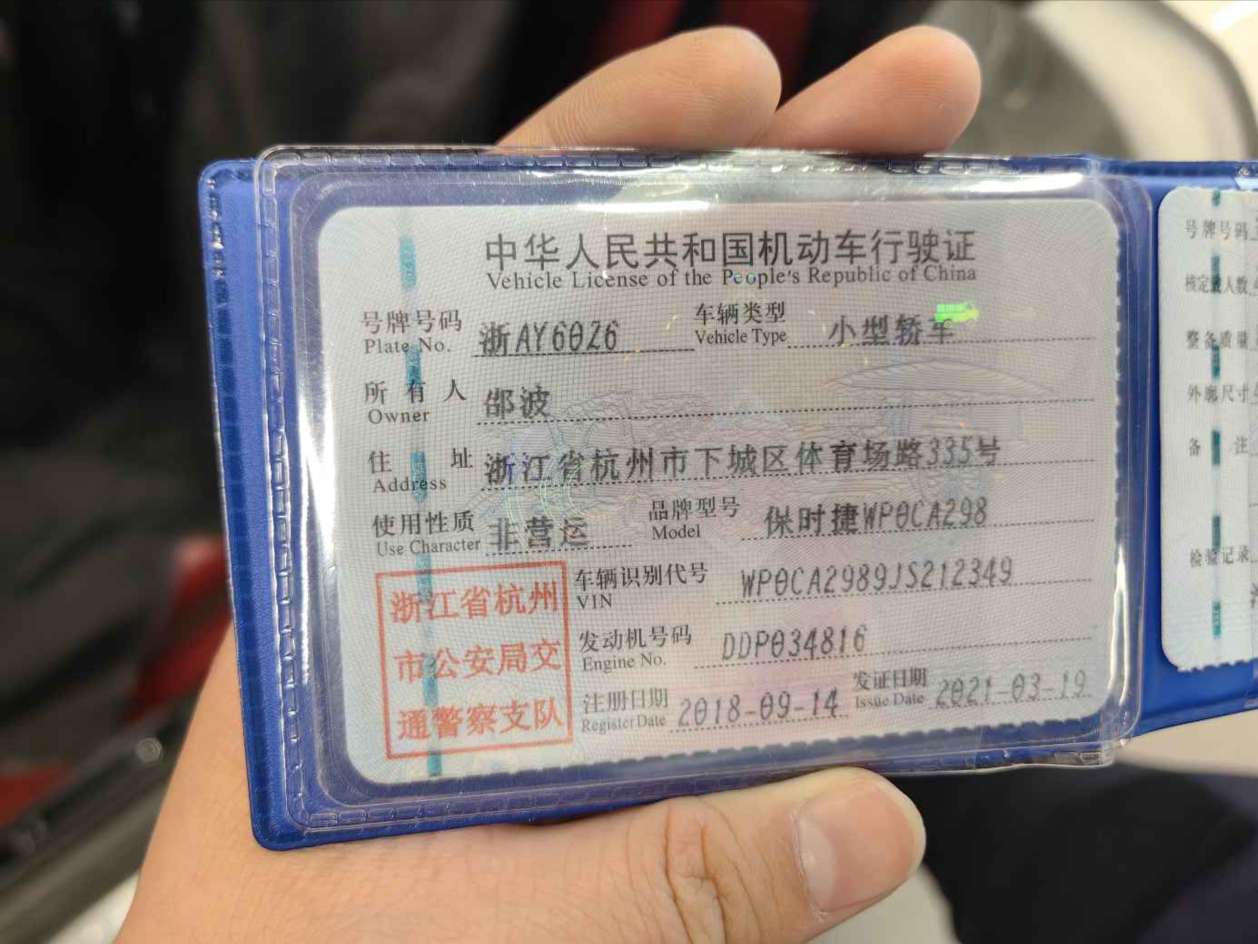 中华人民共和国机动车行驶证
Vehicle License of the People's Republic of China
号牌号码 浙AY6026 车辆类型 小型轿车
Plate No. Vehicle Type
所有人 邵波
Owner
住址 浙江省杭州市下城区体育场路335号
Address
使用性质 非营运 品牌型号 保时捷WP0CA298
Use Character Model
浙江省杭州
市公安局交
通警察支队
车辆识别代号 WP0CA2989JS212349
VIN
发动机号码 DDP034816
Engine No.
注册日期 2018-09-14 发证日期 2021-03-19
Register Date Issue Date
号牌号码
核定载人数
整备质量
外廓尺寸
备注
检验记录